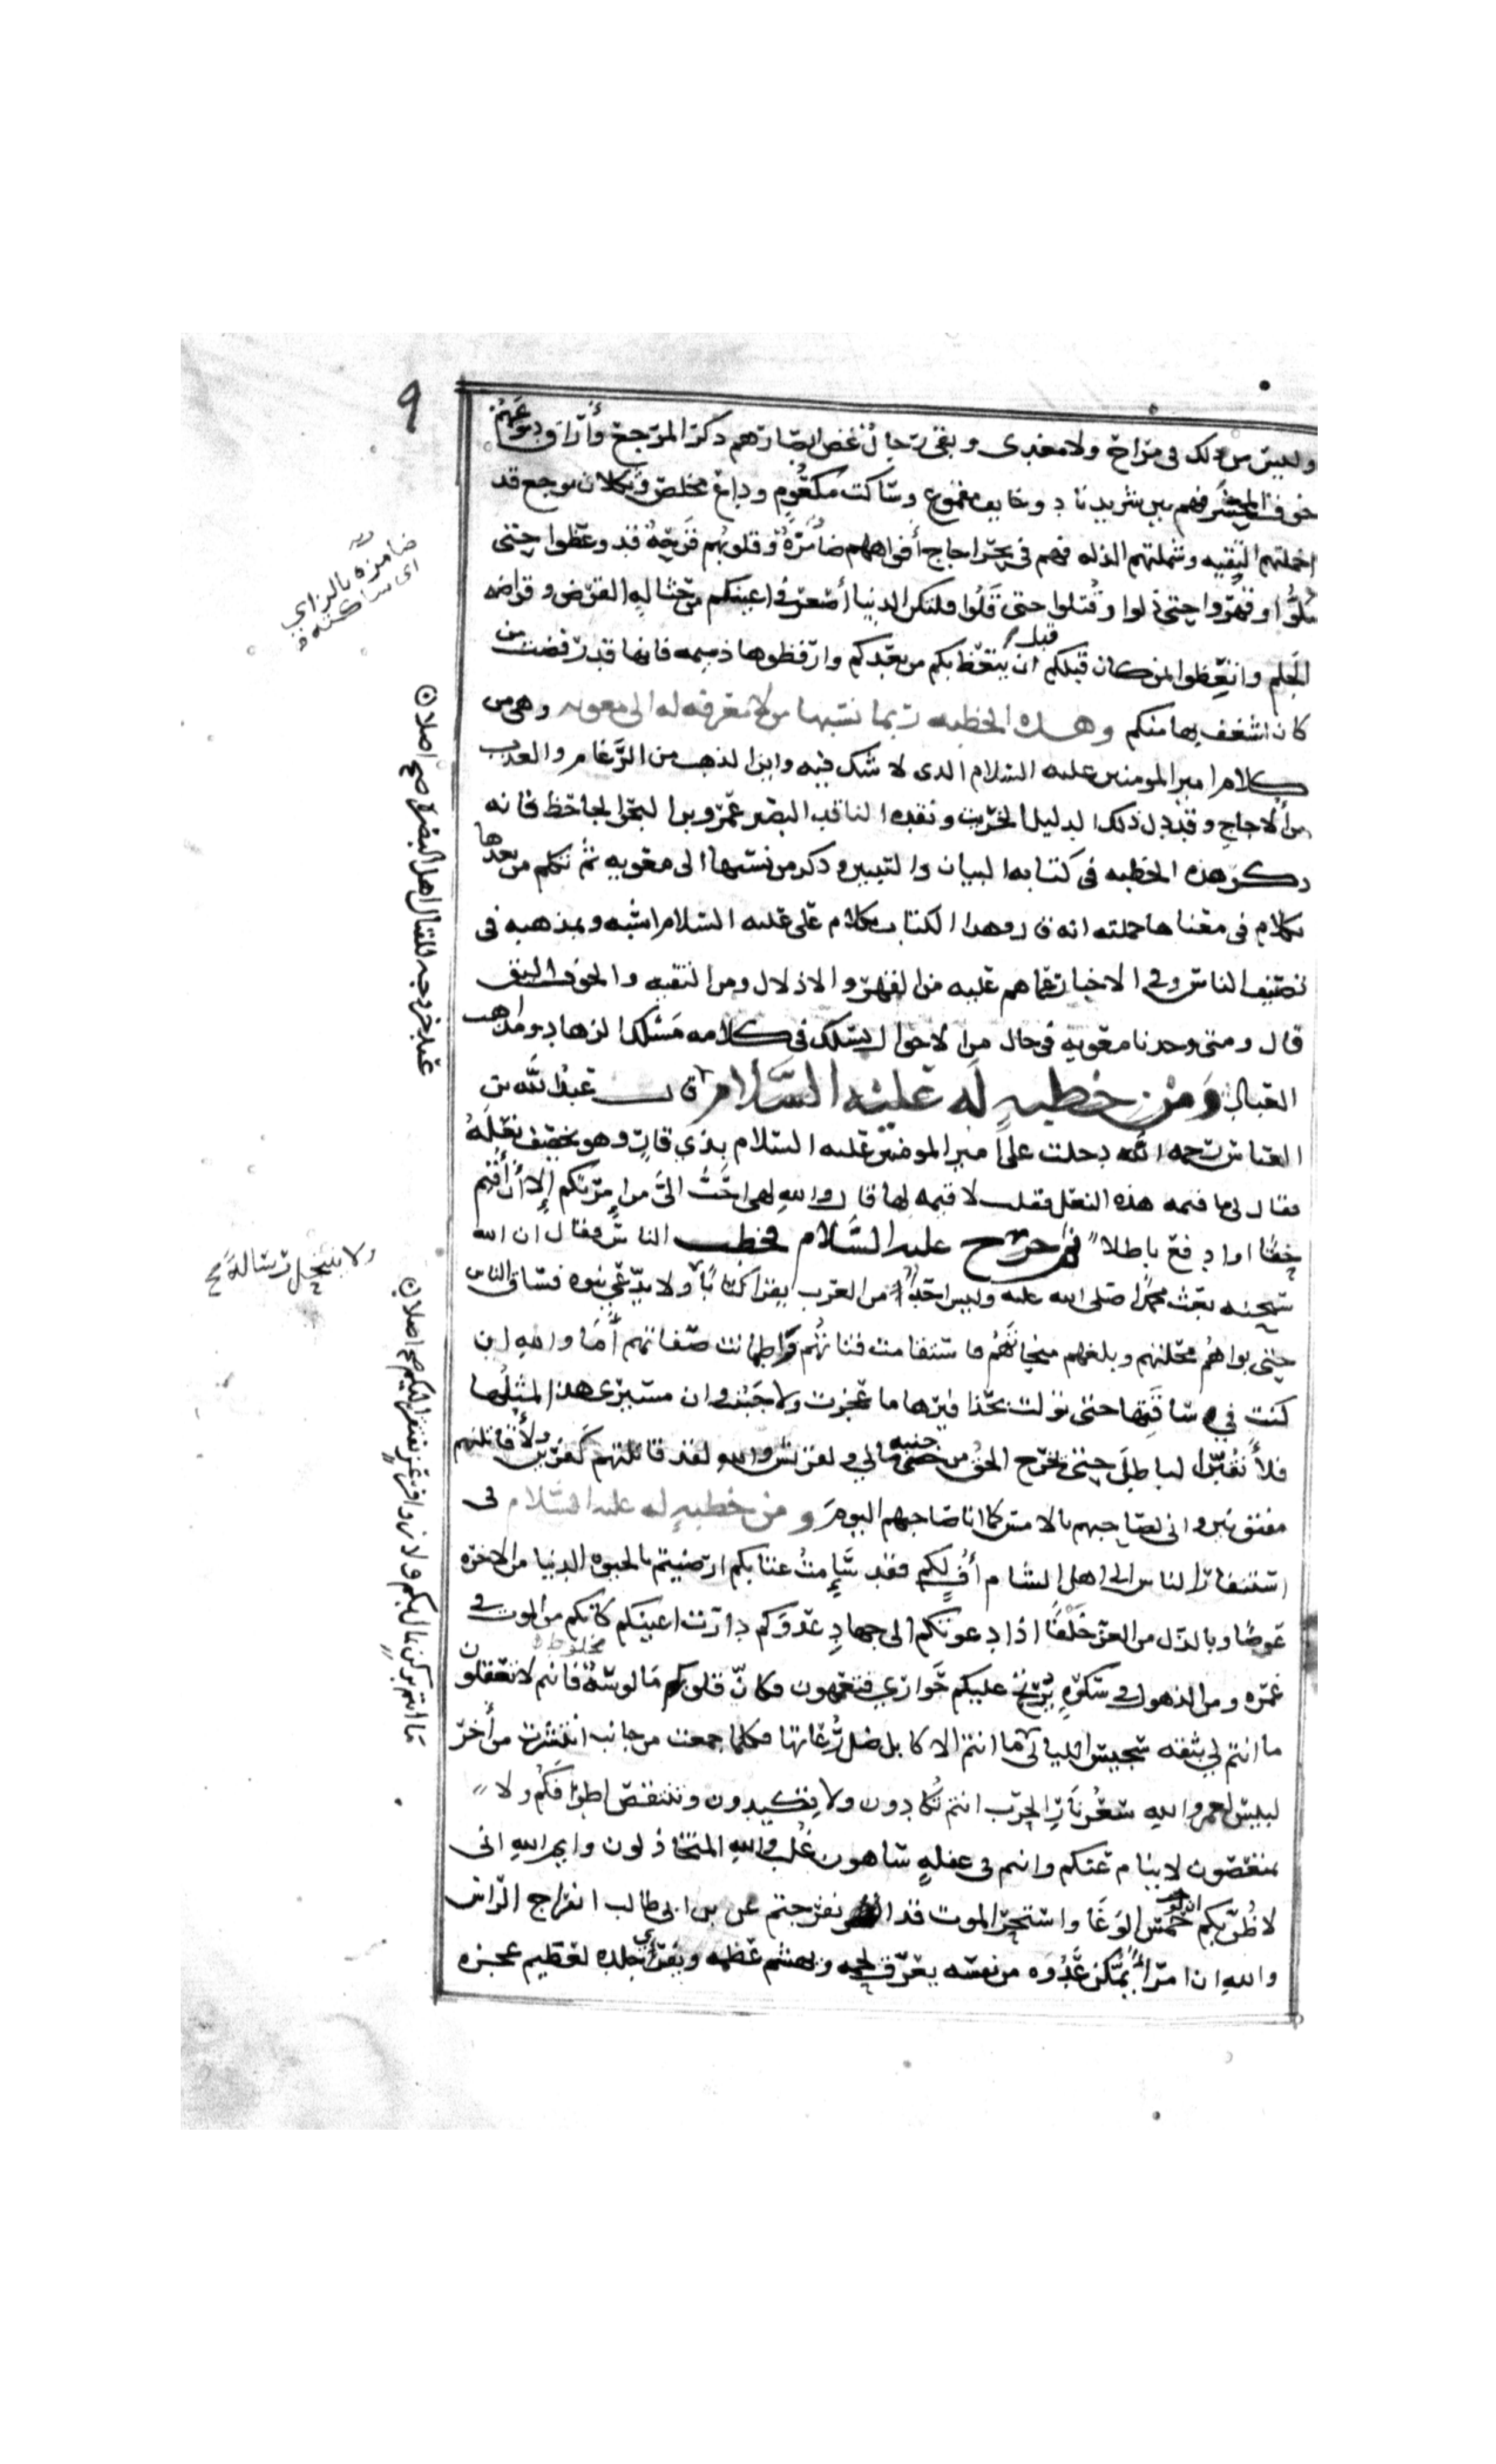 ٩
وليس من ذلك في مراح ولا مغدى وبقى رجال غض ابصارهم ذكر المرجع وأراق دموعهم
خوف المحشر فهم بين شريد ناد وخايف مقموع وساكت مكعوم وداع مخلص وثكلان موجع قد
اخملتهم التقيه وشملتهم الذله فهم في بحر اجاج أفواههم ضامزة وقلوبهم قرحة قد وعظوا حتى
ملوا وقهروا حتى ذلوا وقتلوا حتى قلوا فلتكن الدنيا أصغر في اعينكم من حثالة القرض وقراضه
الجلم واتعظوا بمن كان قبلكم قبل ان يتعظ بكم من بعدكم وارفظوها ذميمه فانها قد رفضت من
كان اشغف بها منكم وهذه الخطبه ربما نسبها من لا معرفه له الى معويه وهي من
كلام امير المومنين عليه السلام الذى لا شك فيه واين الذهب من الرغام والعذب
من الاجاج وقد دل ذلك الدليل الخريت ونقده الناقد البصير عمرو بن البحر الجاحظ فانه
ذكر هذه الخطبه في كتابه البيان والتبيين وذكر من نسبها الى معويه ثم تكلم من بعدها
بكلام في معناها جملته انه قال وهذا الكتاب بكلام على عليه السلام اشبه وبمذهبه في
تصنيف الناس وفي الاخبار عما هم عليه من القهر والاذلال ومن التقيه والخوف اليق
قال ومتى وجدنا معويه في حال من الاحوال يسلك في كلامه مسلك الزهاد ومذاهب
العباد ومن خطبه له عليه السلام قال عبد الله بن
العباس رحمه الله دخلت على امير المومنين عليه السلام بذي قار وهو يخصف نعله
فقال لى ما قيمه هذه النعل فقلت لا قيمه لها قال والله لهى احب الى من امرتكم إلا أن أقيم
حقا او ادفع باطلا ثم خرج عليه السلام فخطب الناس فقال ان الله
سبحنه بعث محمدا صلى الله عليه وليس احد من العرب يقرا كتابا ولا يدعي نبوه فساق الناس
حتى بواهم محلتهم وبلغهم منجاتهم فاستقامت قناتهم واطمانت صفاتهم أما والله ان
كنت في ساقتها حتى تولت بحذافيرها ما عجزت ولا جبنت وان مسيرى هذا لمثلها
فلأنقبن الباطل حتى يخرج الحق من جنبه مالي ولقريش والله لقد قاتلتهم كافرين ولأقاتلنهم
مفتونين وانى لصاحبهم بالامس كما انا صاحبهم اليوم ومن خطبة له عليه السلام في
استنفار الناس الى اهل الشام أف لكم فقد سئمت عتابكم ارضيتم بالحيوة الدنيا من الاخره
عوضا وبالذل من العز خلفا اذا دعوتكم الى جهاد عدوكم دارت اعينكم كانكم من الموت في
غمره ومن الذهول في سكره يرتج عليكم حواري فتعمهون فكان قلوبكم مالوسة فانتم لا تعقلون
مخلوطه
ما انتم لي بثقه سجيس الليالى ما انتم الا كابل ضل رعاتها فكلما جمعت من جانب انتشرت من أخر
لبيس لعمر والله سعر نار الحرب انتم تكادون ولا تكيدون وتنتقص اطرافكم ولا
تمتعضون لا ينام عنكم وانتم في غفله ساهون غلب والله المتخاذلون وايم الله انى
لاظن بكم ان لو حمس الوغا واستحر الموت قد انفرجتم عن بن ابى طالب انفراج الراس
والله ان امرأ يمكن عدوه من نفسه يعرق لحمه ويهشم عظمه ويفري جلده لعظيم عجزه
ضامزه بالزاي
اى ساكته
عند خروجه لقتال اهل البصره صح اصلا
ولا ينتحل رسالة صح
ما انتم بركن يمال بكم ولا زوافر عز يفتقر اليكم صح اصلا